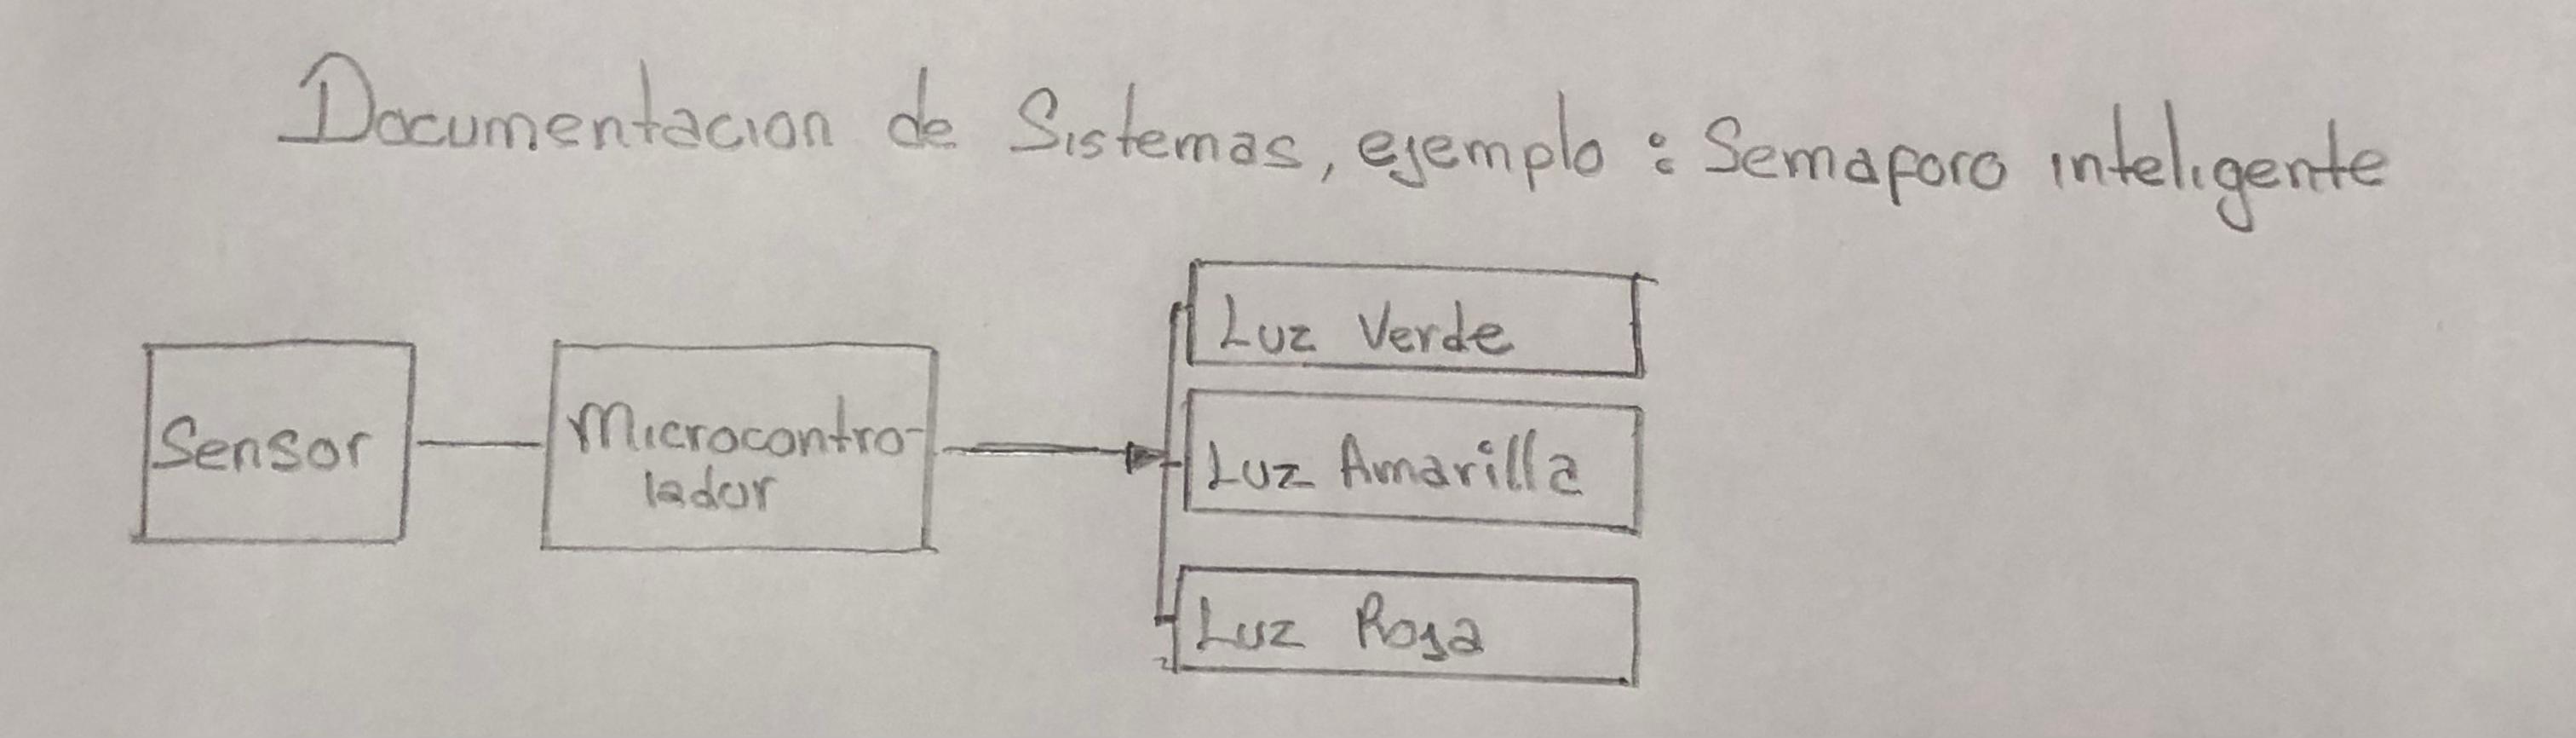 Documentacion de Sistemas, ejemplo: Semaforo inteligente
Sensor
Microcontro-
lador
Luz Verde
Luz Amarilla
Luz Roja